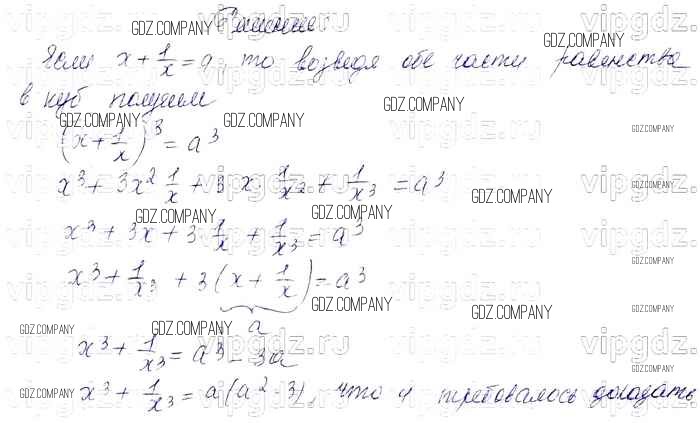 Решение
Если x + 1/x = a, то возведя обе части равенства
в куб получим
(x + 1/x)^3 = a^3
x^3 + 3x^2 1/x + 3 x · 1/x^2 + 1/x^3 = a^3
x^3 + 3x + 3 1/x + 1/x^3 = a^3
x^3 + 1/x^3 + 3 (x + 1/x) = a^3
a
x^3 + 1/x^3 = a^3 - 3a
x^3 + 1/x^3 = a(a^2 - 3), что и требовалось доказать
GDZ.COMPANY
vipgdz.ru